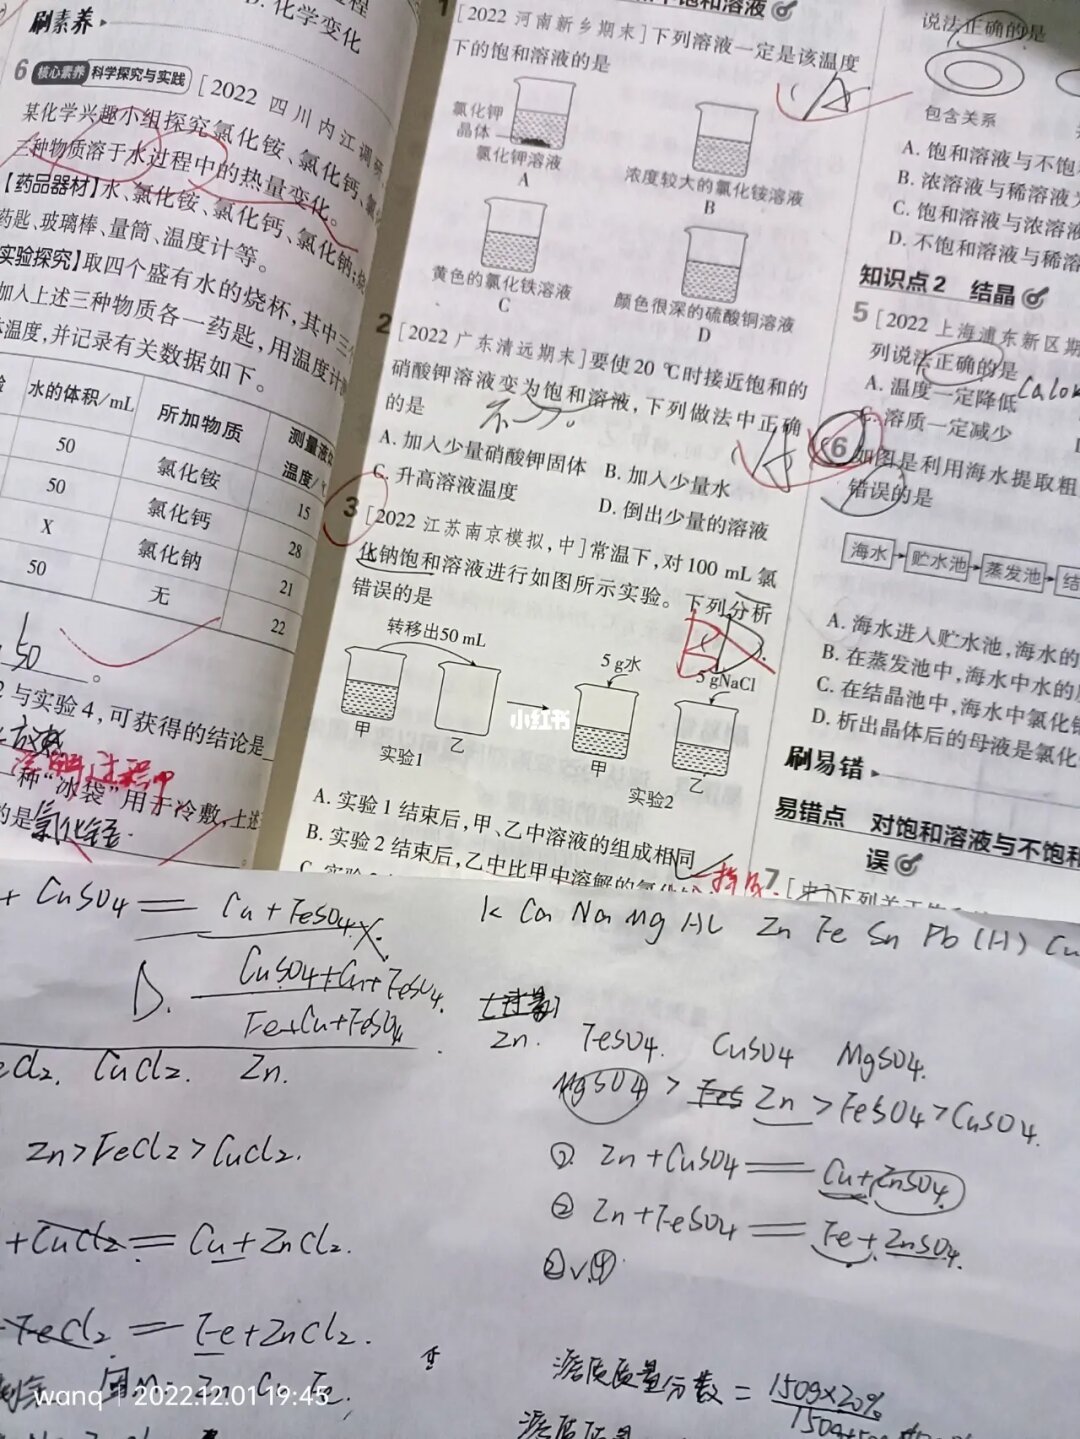 刷素养
D. 化学变化
6 核心素养 科学探究与实践 [2022 四川内江调研
某化学兴趣小组探究氯化铵、氯化钙、
三种物质溶于水过程中的热量变化。
【药品器材】水、氯化铵、氯化钙、氯化钠;
药匙、玻璃棒、量筒、温度计等。
实验探究】取四个盛有水的烧杯,其中三
加入上述三种物质各一药匙,用温度计
温度,并记录有关数据如下。
水的体积/mL 所加物质 测量液
温度/
50 氯化铵 15
50 氯化钙 28
X 氯化钠 21
50 无 22
50 。
2 与实验4,可获得的结论是
溶解过程中
一种“冰袋”用于冷敷,上述
的是氯化铵.
1
饱和溶液
[2022 河南新乡期末]下列溶液一定是该温度
下的饱和溶液的是
(A
氯化钾
晶体
氯化钾溶液
A
浓度较大的氯化铵溶液
B
黄色的氯化铁溶液
C
颜色很深的硫酸铜溶液
D
2
[2022 广东清远期末]要使 20 ℃时接近饱和的
硝酸钾溶液变为饱和溶液,下列做法中正确
的是
A. 加入少量硝酸钾固体 B. 加入少量水
C. 升高溶液温度 D. 倒出少量的溶液
3
[2022 江苏南京模拟,中]常温下,对 100 mL 氯
化钠饱和溶液进行如图所示实验。下列分析
错误的是
转移出50 mL
5 g水
5 gNaCl
甲 乙 甲 乙
实验1 实验2
小红书
A. 实验 1 结束后,甲、乙中溶液的组成相同
B. 实验 2 结束后,乙中比甲中溶解的氯化
说法正确的是
包含关系
A. 饱和溶液与不饱
B. 浓溶液与稀溶液
C. 饱和溶液与浓溶液
D. 不饱和溶液与稀溶
知识点2 结晶
5 [2022 上海浦东新区期
列说法正确的是
A. 温度一定降低
C. 溶质一定减少
6 如图是利用海水提取粗
错误的是
海水 贮水池 蒸发池 结
A. 海水进入贮水池,海水的
B. 在蒸发池中,海水中水的
C. 在结晶池中,海水中氯化
D. 析出晶体后的母液是氯化
刷易错
易错点 对饱和溶液与不饱和
误
7
+ CuSO4 = Cu + FeSO4 X.
D. CuSO4+Cu+FeSO4.
Fe+Cu+FeSO4
eCl2. CuCl2. Zn.
Zn>FeCl2>CuCl2.
+CuCl2 = Cu+ZnCl2.
FeCl2 = Fe+ZnCl2.
K Ca Na Mg Al Zn Fe Sn Pb (H) Cu
Zn. FeSO4. CuSO4 MgSO4.
MgSO4 > Zn > FeSO4 > CuSO4.
① Zn+CuSO4 = Cu+ZnSO4.
② Zn+FeSO4 = Fe+ZnSO4.
溶质质量分数 = 150g×20%
wanq | 2022.12.01 19:45